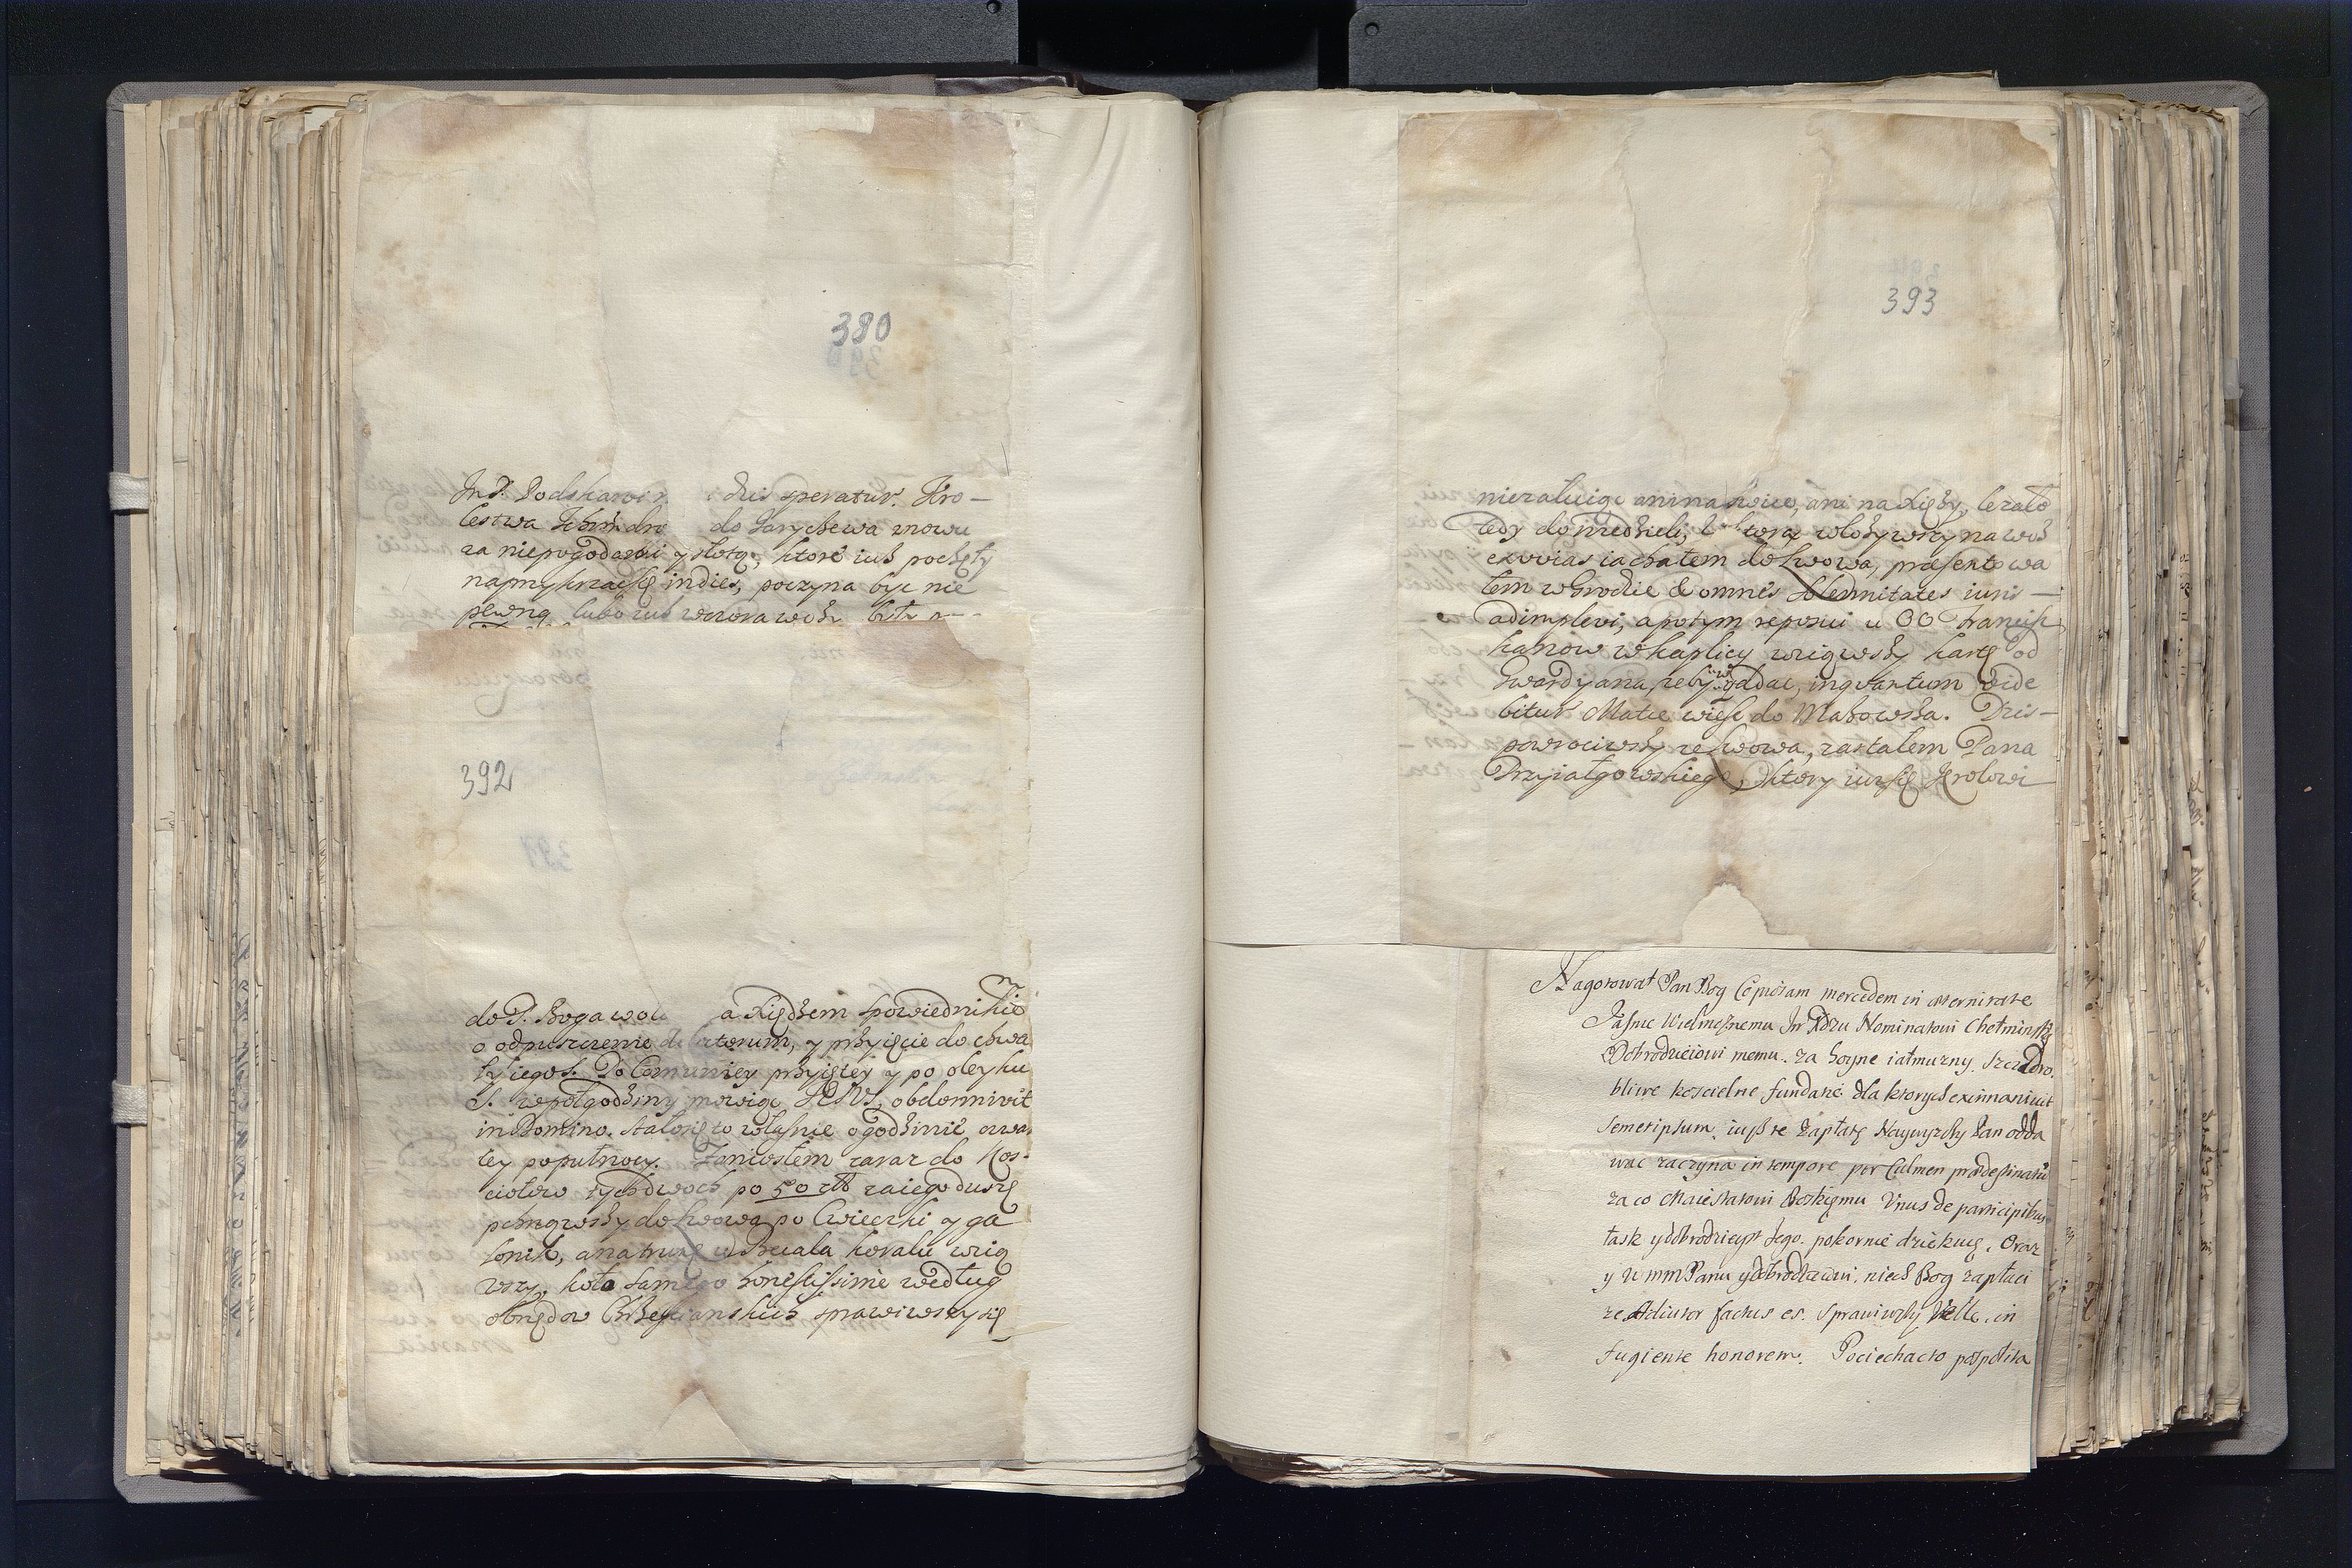 380
JmP. Podskarbi dzis speratur. Kro-
lestwa Ichm do Jarychewa znowu
za niepogodami y słotą, ktore iuż poczęły
naprzykrzac się indies, poczyna byc nie
pewną lubo iuż wczora
392
do P. Boga wol a Xiędzem Spowiednikiē
o odpuszczenie delictorum, y przyięcie do chwa
ły iego s. Po Comuniey przyiętey y po oleyku
S. w połgodziny mowiąc IESVS, obdormivit
in Domino. Stało się to własnie o godzinie czwar
tey popułnocy. Zaniosłem zaraz do Kos-
ciołow tych dwoch po 50 za iego duszę
posławszy do Lwowa po Cwieczki y ga
lonik, a na trunę u koralu wzią
wszy, koło samego honestissime według
obrzędow Chrzescianskich sprawiwszy się
393
nieżałuiąc ani na swiece, ani na Xięży, leżało
tedy do niedzieli, włożywszy na woz
exuvias iachałem do Lwowa, præsentowa
łem w Grodzie & omnes solemnitates iuris
adimplevi, a potym reposui u OO Francisz
kanow w kaplicy wziąwszy kartę od
Gwardyana, żeby oddac, inquantum vide
bitur Matce wiesc do Makowska. Dzis-
powrociwszy ze Lwowa, zastałem Pana
Przyiałgowskiego, ktory iusz się Krolowi
Nagotował Pan Bog Copiosam mercedem in æternitate
Jasnie Wielmożnemu Jm Xdzu Nominatowi Chełminsk
Dobrodzieiowi memu. za hoyne iałmużny. szczodro
bliwe koscielne fundacie dla ktorych exinnanivit
semetipsum. iusz te zapłatę Naywyższy Pan odda
wac zaczyna in tempore per Culmen prædestinatū
za co Maiestatowi Boskiemu Unus de participibus
łask y dobrodzieystw Jego. pokornie dziękuię. Oraz
y W mm Panu y dobrodzieiowi. niech Bog zapłaci
ze Adiutor factus es. sprawiwszy Velle. in
fugiente honorem. Pociecha to pospolita